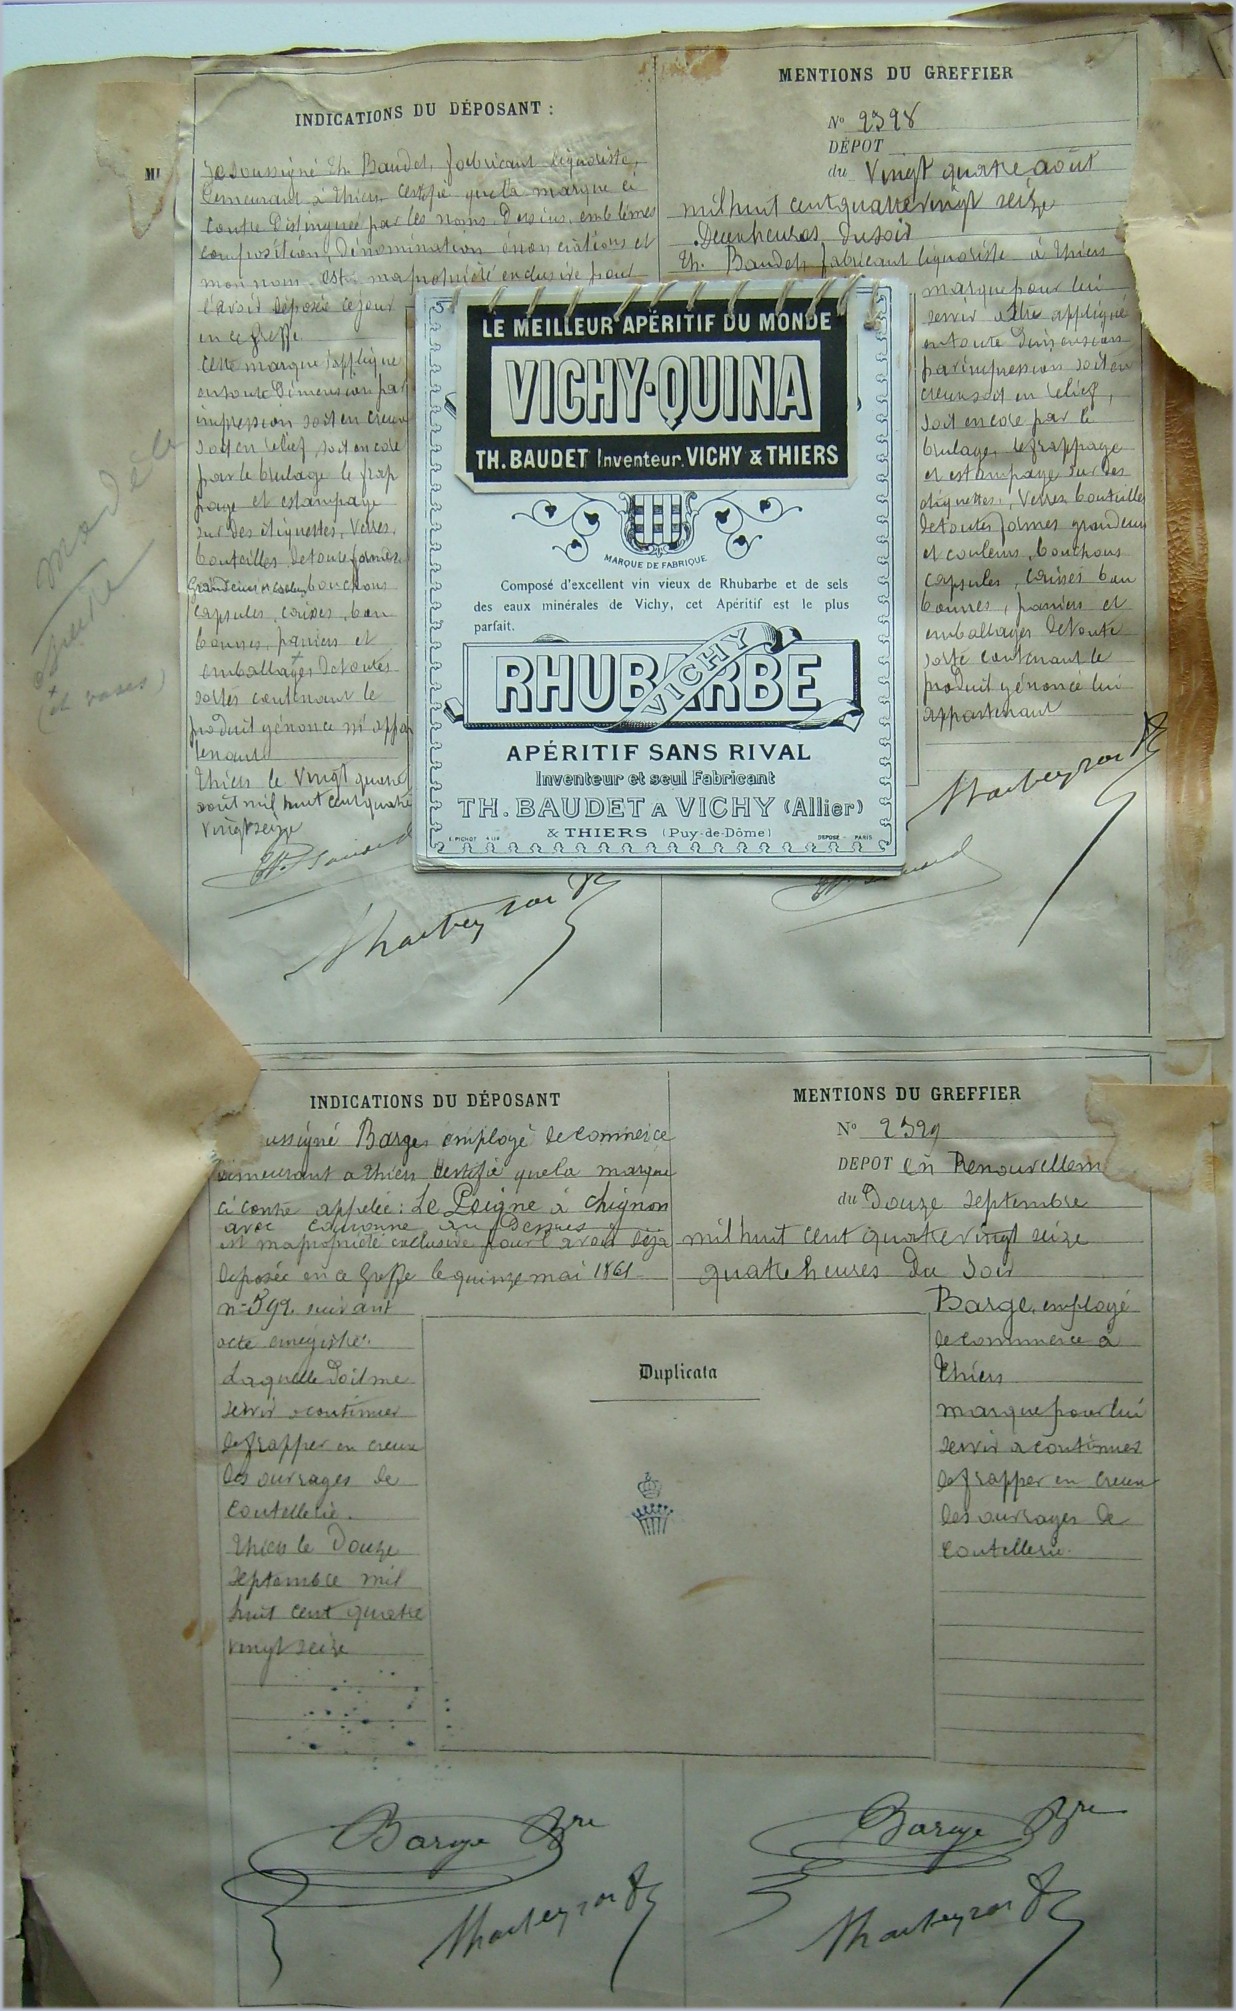 INDICATIONS DU DÉPOSANT :
Je soussigné Th. Baudet, fabricant liquoriste,
demeurant à Thiers certifie que la marque ci
contre distinguée par les noms, dessins, emblèmes
composition, dénomination, énonciations et
mon nom est ma propriété exclusive pour
l'avoir déposée ce jour
en ce greffe
Cette marque s'applique
en toute dimension par
impression soit en creux
soit en relief, soit encore
par le brulage le frap
page et estampage
sur des étiquettes, verres,
bouteilles de toute formes
grandeurs et couleurs bouchons
capsules, caisses, bon
bonnes, paniers et
emballages de toutes
sortes contenant le
produit y énoncé m'appar
tenant
Thiers le vingt quatre
août mil huit cent quatre
vingt seize
MENTIONS DU GREFFIER
N° 2328
DÉPÔT
du Vingt quatre août
mil huit cent quatre vingt seize
heures du soir
Th. Baudet, fabricant liquoriste à Thiers
marque pour lui
servir à être appliqué
en toute dimensions
par impression soit en
creux soit en relief,
soit encore par le
brulage, le frappage
et estampage sur des
étiquettes, verres bouteilles
de toutes formes grandeurs
et couleurs, bouchons
capsules, caisses bon
bonnes, paniers et
emballages de toute
sorte contenant le
produit y énoncé lui
appartenant
LE MEILLEUR APÉRITIF DU MONDE
VICHY-QUINA
TH. BAUDET Inventeur. VICHY & THIERS
MARQUE DE FABRIQUE
Composé d'excellent vin vieux de Rhubarbe et de sels
des eaux minérales de Vichy, cet Apéritif est le plus
parfait.
RHUBARBE
VICHY
APÉRITIF SANS RIVAL
Inventeur et seul Fabricant
TH. BAUDET A VICHY (Allier)
& THIERS (Puy-de-Dôme)
DÉPOSÉ - PARIS
INDICATIONS DU DÉPOSANT
ussigné Barge, employé de commerce
demeurant à Thiers certifie que la marque
ci contre appelée : Le Peigne à chignon
avec couronne au dessus
est ma propriété exclusive pour l'avoir déjà
déposée en ce Greffe le quinze mai 1861
n° 592 suivant
acte enregistré.
Laquelle doit me
servir à continuer
de frapper en creux
des ouvrages de
coutellerie.
Thiers le Douze
septembre mil
huit cent quatre
vingt seize
MENTIONS DU GREFFIER
N° 2329
DEPOT en Renouvellem
du Douze septembre
mil huit cent quatre vingt seize
quatre heures du soir
Barge, employé
de commerce à
Thiers
marque pour lui
servir à continuer
de frapper en creux
des ouvrages de
coutellerie.
Duplicata
Barge
Barge